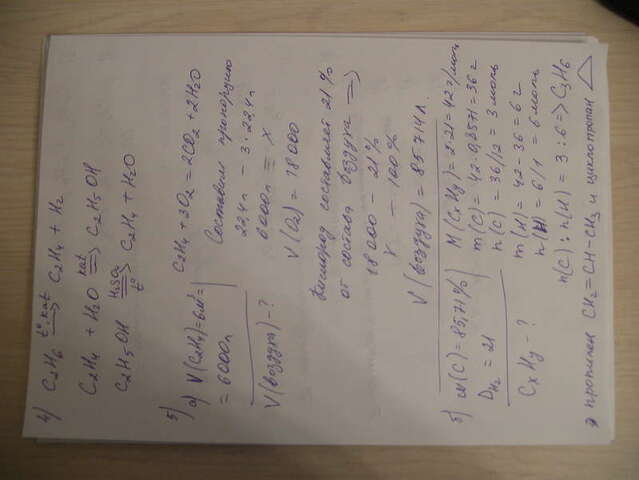 4) C2H6 t°.кат → C2H4 + H2
C2H4 + H2O кат → C2H5OH
C2H5OH H2SO4 t° → C2H4 + H2O
5) а) V(C2H4)=6м³=
= 6000л
V(воздуха)-?
C2H4 + 3O2 = 2CO2 + 2H2O
Составим пропорцию
22,4л – 3·22,4л
6000л = x
V(O2) = 18000
Кислород составляет 21%
от состава воздуха =>
18000 – 21%
V – 100%
V(воздуха) = 85714л.
б) ω(C) = 85,71%
DH2 = 21
CxHy - ?
M(CxHy) = 2·21 = 42г/моль
m(C) = 42·0,8571 = 36г
n(C) = 36/12 = 3 моль
m(H) = 42-36 = 6г
n(H) = 6/1 = 6моль
n(C) : n(H) = 3 : 6 => C3H6
пропилен CH2=CH-CH3 и циклопропан